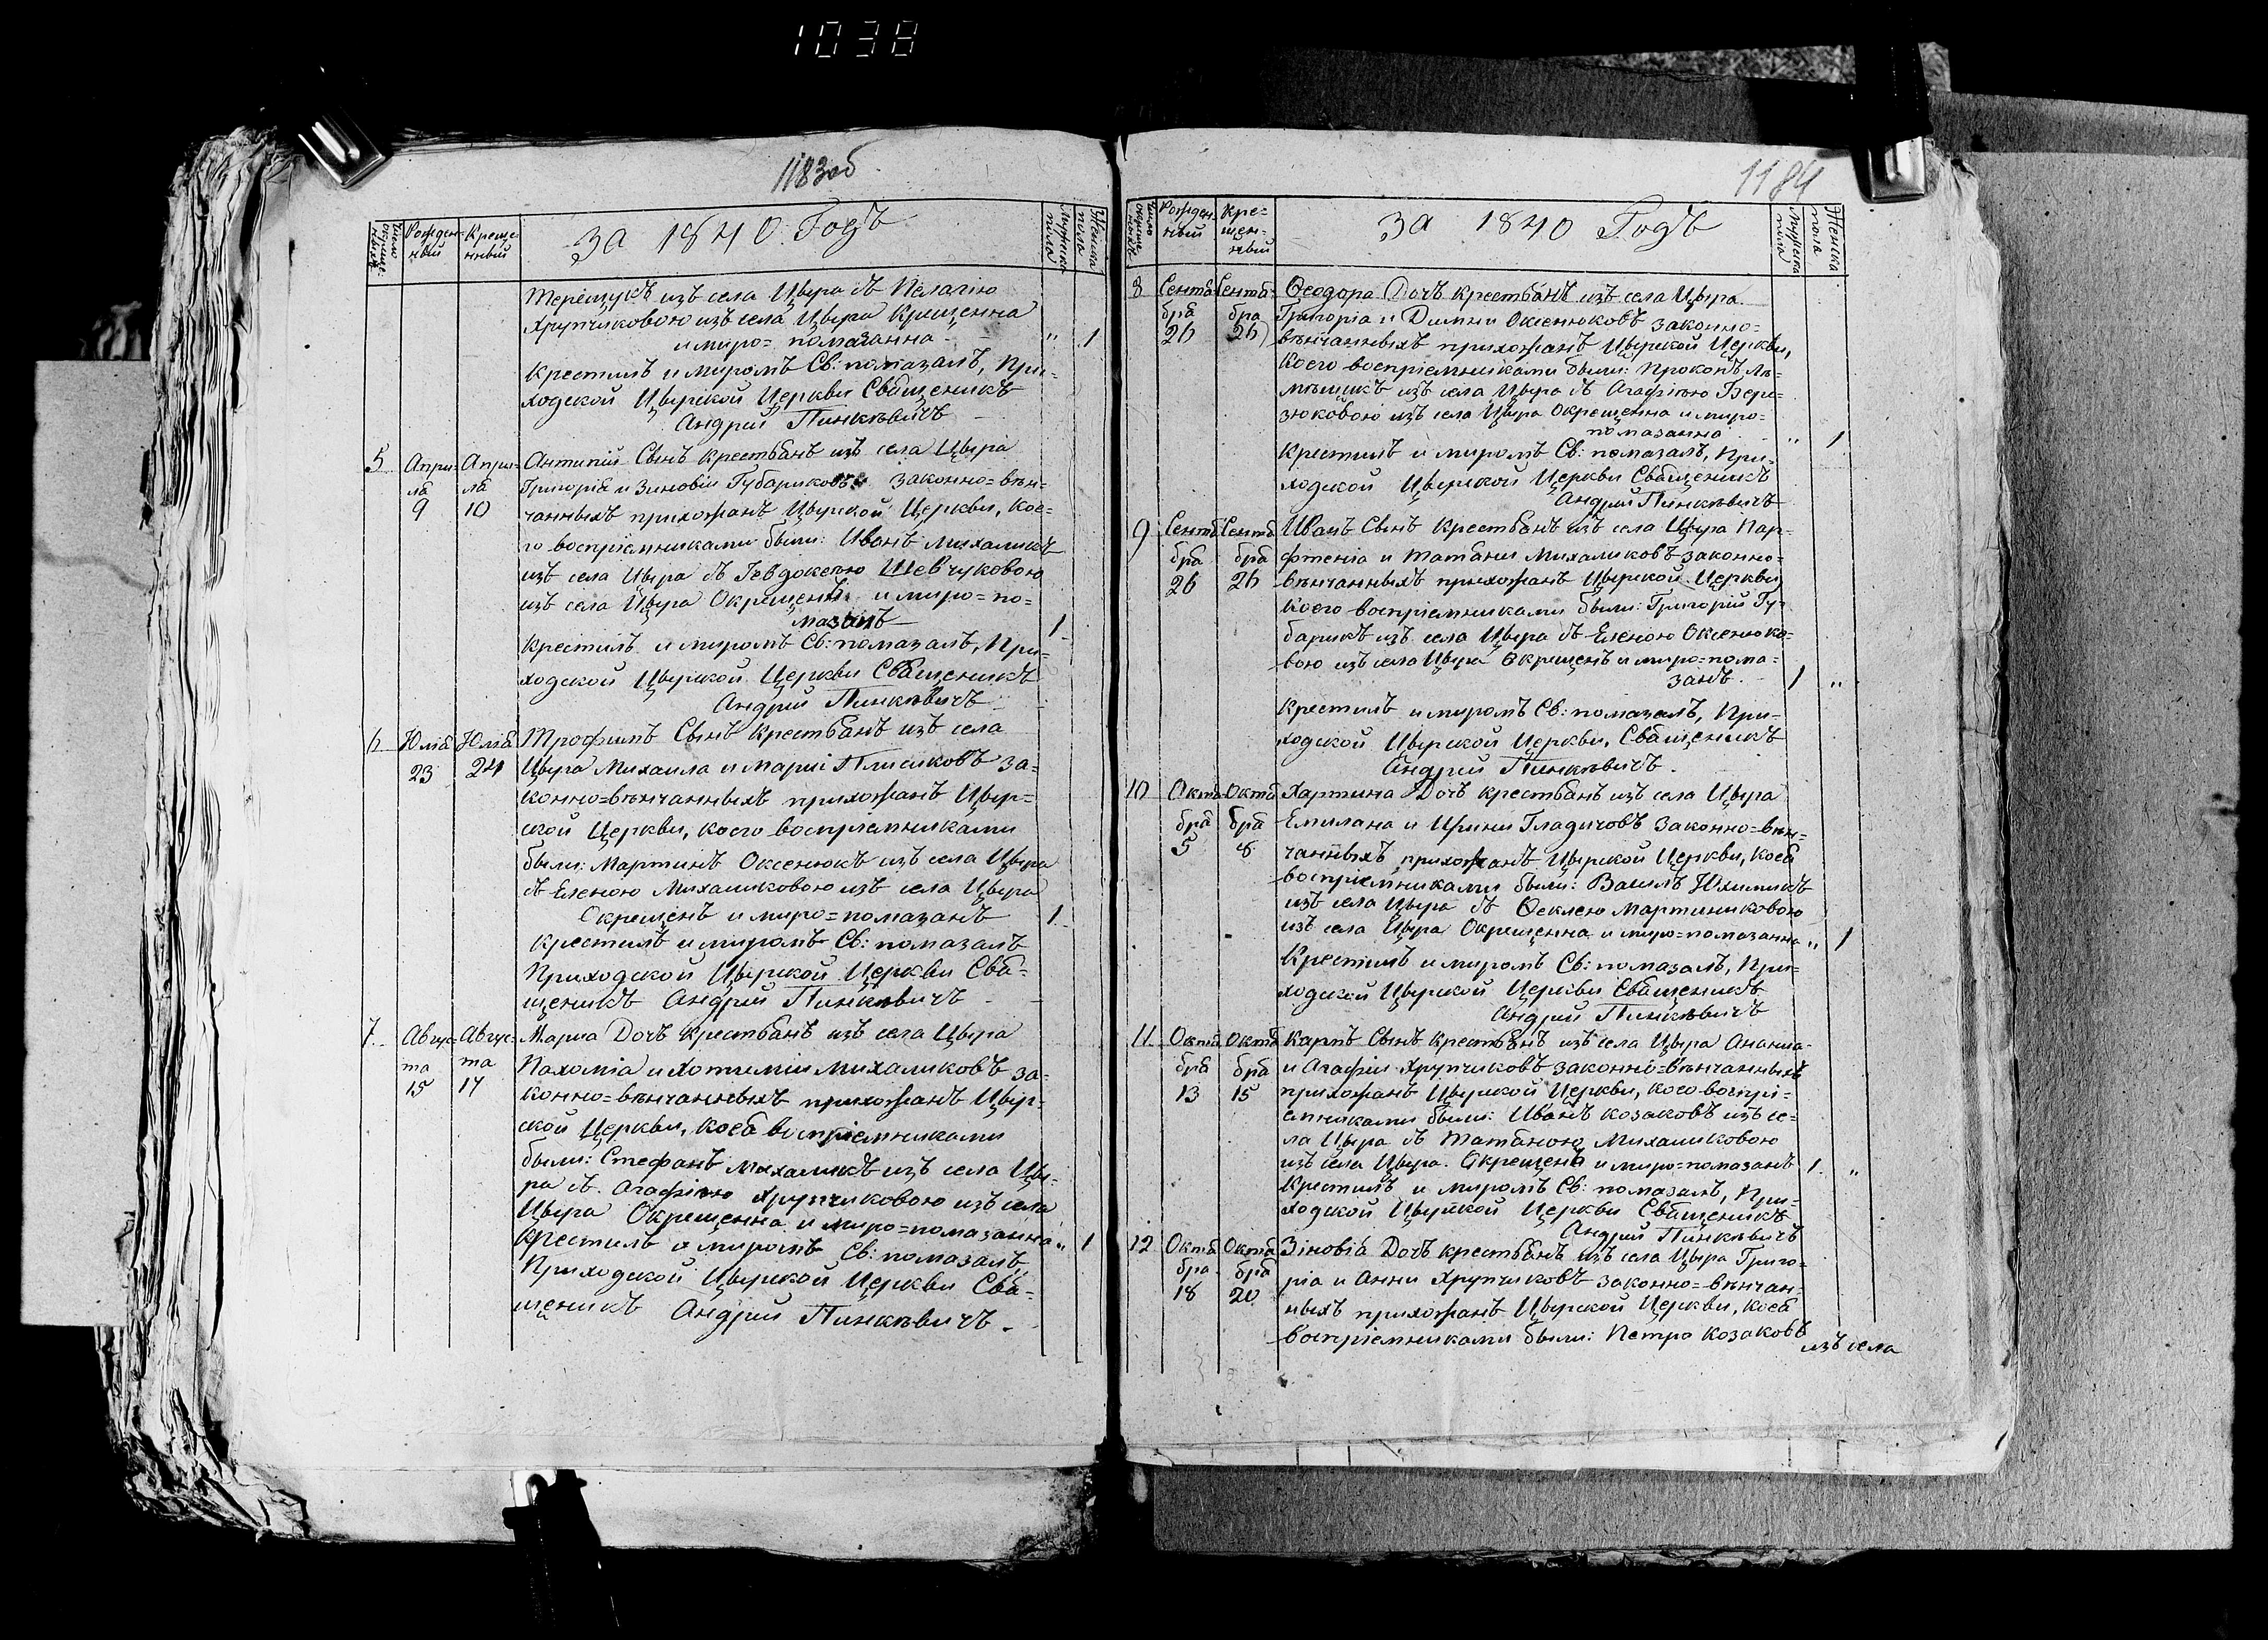 1038
1183об
Число окрещенныхъ
Рожден-
ный
Креще
нный
За 1840 Годъ
Мужеска пола
Женска пола
Терещукъ изъ села Цвыра съ Пелагію
Хрупчиковою изъ села Цвыра Крещенна
и миро= помазанна " 1
Крестилъ и миромъ Св: помазалъ, При-
ходской Цвырской Церкви Священикъ
Андрій Пинкѣвичъ
5 Апри- Апри- Антипій Сынъ крестьянъ изъ села Цвыра
ля ля Григорія и Зиновіи Губариковъ законно=вѣн-
9 10 чанныхъ прихожанъ Цвырской Церкви, кое-
го воспріемниками были: Иванъ Михаликъ
изъ села Цвыра съ Гевдокею Шевчуковою
изъ села Цвыра Окрещенъ и миро=по=
мазанъ 1
Крестилъ и миромъ Св: помазалъ, При-
ходской Цвырской Церкви Священикъ
Андрій Пинкѣвичъ
6 Юлія Юлія Трофимъ Сынъ крестьянъ изъ села
23 24 Цвыра Михаила и Маріи Плисиковъ за=
конно=вѣнчанныхъ прихожанъ Цвыр=
ской Церкви, коего воспріемниками
были: Мартинъ Оксенюкъ изъ села Цвыра
съ Еленою Михаликовою изъ села Цвыра
Окрещенъ и миро=помазанъ 1
Крестилъ и миромъ Св: помазалъ
Приходской Цвырской Церкви Свя-
щеникъ Андрій Пинкѣвичъ
7 Авгус- Авгус- Мариа Дочъ крестьянъ изъ села Цвыра
та та Пахомія и Хотиміи Михаликовъ за=
15 17 конно=вѣнчанныхъ прихожанъ Цвыр-
ской Церкви, коея воспріемниками
были: Стефанъ Михаликъ изъ села Цвы-
ра съ Агафіею Хрупчиковою изъ села
Цвыра Окрещенна и миро=помазанна " 1
Крестилъ и миромъ Св: помазалъ,
Приходской Цвырской Церкви Свя-
щеникъ Андрій Пинкѣвичъ
1184
Число окрещенныхъ
Рожден-
ный
Кре=
щен-
ный
За 1840 Годъ
Мужеска пола
Женска пола
8 Сентя Сентя Ѳеодора Дочъ крестьянъ изъ села Цвыра
бря бра Григоріа и Димни Оксенюковъ законно=
26 26 вѣнчанныхъ прихожанъ Цвырской Церкви,
коего воспріемниками были: Прокопъ
изъ села Цвыра съ Агафіею Бере-
зюковою изъ села Цвыра Окрещенна и миро=
помазанна " 1
Крестилъ и миромъ Св: помазалъ, При-
ходской Цвырской Церкви Священикъ
Андрій Пинкѣвичъ
9 Сентя Сентя Иванъ Сынъ крестьянъ изъ села Цвыра Пар-
бря бря фтеніа и Татьяни Михаликовъ законно-
26 26 вѣнчанныхъ прихожанъ Цвырской Церкви
коего воспріемниками были: Григорій Гу-
барикъ изъ села Цвыра съ Еленою Оксенюко-
вою изъ села Цвыра Окрещенъ и миро=пома=
занъ 1 "
Крестилъ и миромъ Св: помазалъ, При-
ходской Цвырской Церкви, Священикъ
Андрій Пинкѣвичъ.
10 Октя Октя Хартина Дочъ крестьянъ изъ села Цвыра
бря бря Емиляна и Ирини Гладичовъ законно=вѣн=
5 8 чанныхъ прихожанъ Цвырской Церкви, коея
воспріемниками были: Василь Юхимикъ
изъ села Цвыра съ Ѳеклею Мартиниковою
изъ села Цвыра Окрещенна и миро=помазанна " 1
Крестилъ и миромъ Св: помазалъ, При-
ходской Цвырской Церкви Священикъ
Андрій Пинкѣвичъ
11 Октя Октя Карпъ Сынъ крестьянъ изъ села Цвыра Ананиа
бря бря и Агафіи Хрупчиковъ законно=вѣнчанныхъ
13 15 прихожанъ Цвырской Церкви, коего воспрі-
емниками были: Иванъ Козаковъ изъ се-
ла Цвыра съ Татьяною Михаликовою
изъ села Цвыра. Окрещенъ и миро=помазанъ 1 "
Крестилъ и миромъ Св: помазалъ, При-
ходской Цвырской Церкви Священикъ
Андрій Пинкѣвичъ
12 Октя Октя Зіновіа Дочъ крестьянъ изъ села Цвыра Григо-
бра бря ріа и Анни Хрупчиковъ законно=вѣнчан-
18 20 ныхъ прихожанъ Цвырской Церкви, коея
воспріемниками были: Петро Козаковъ
изъ села